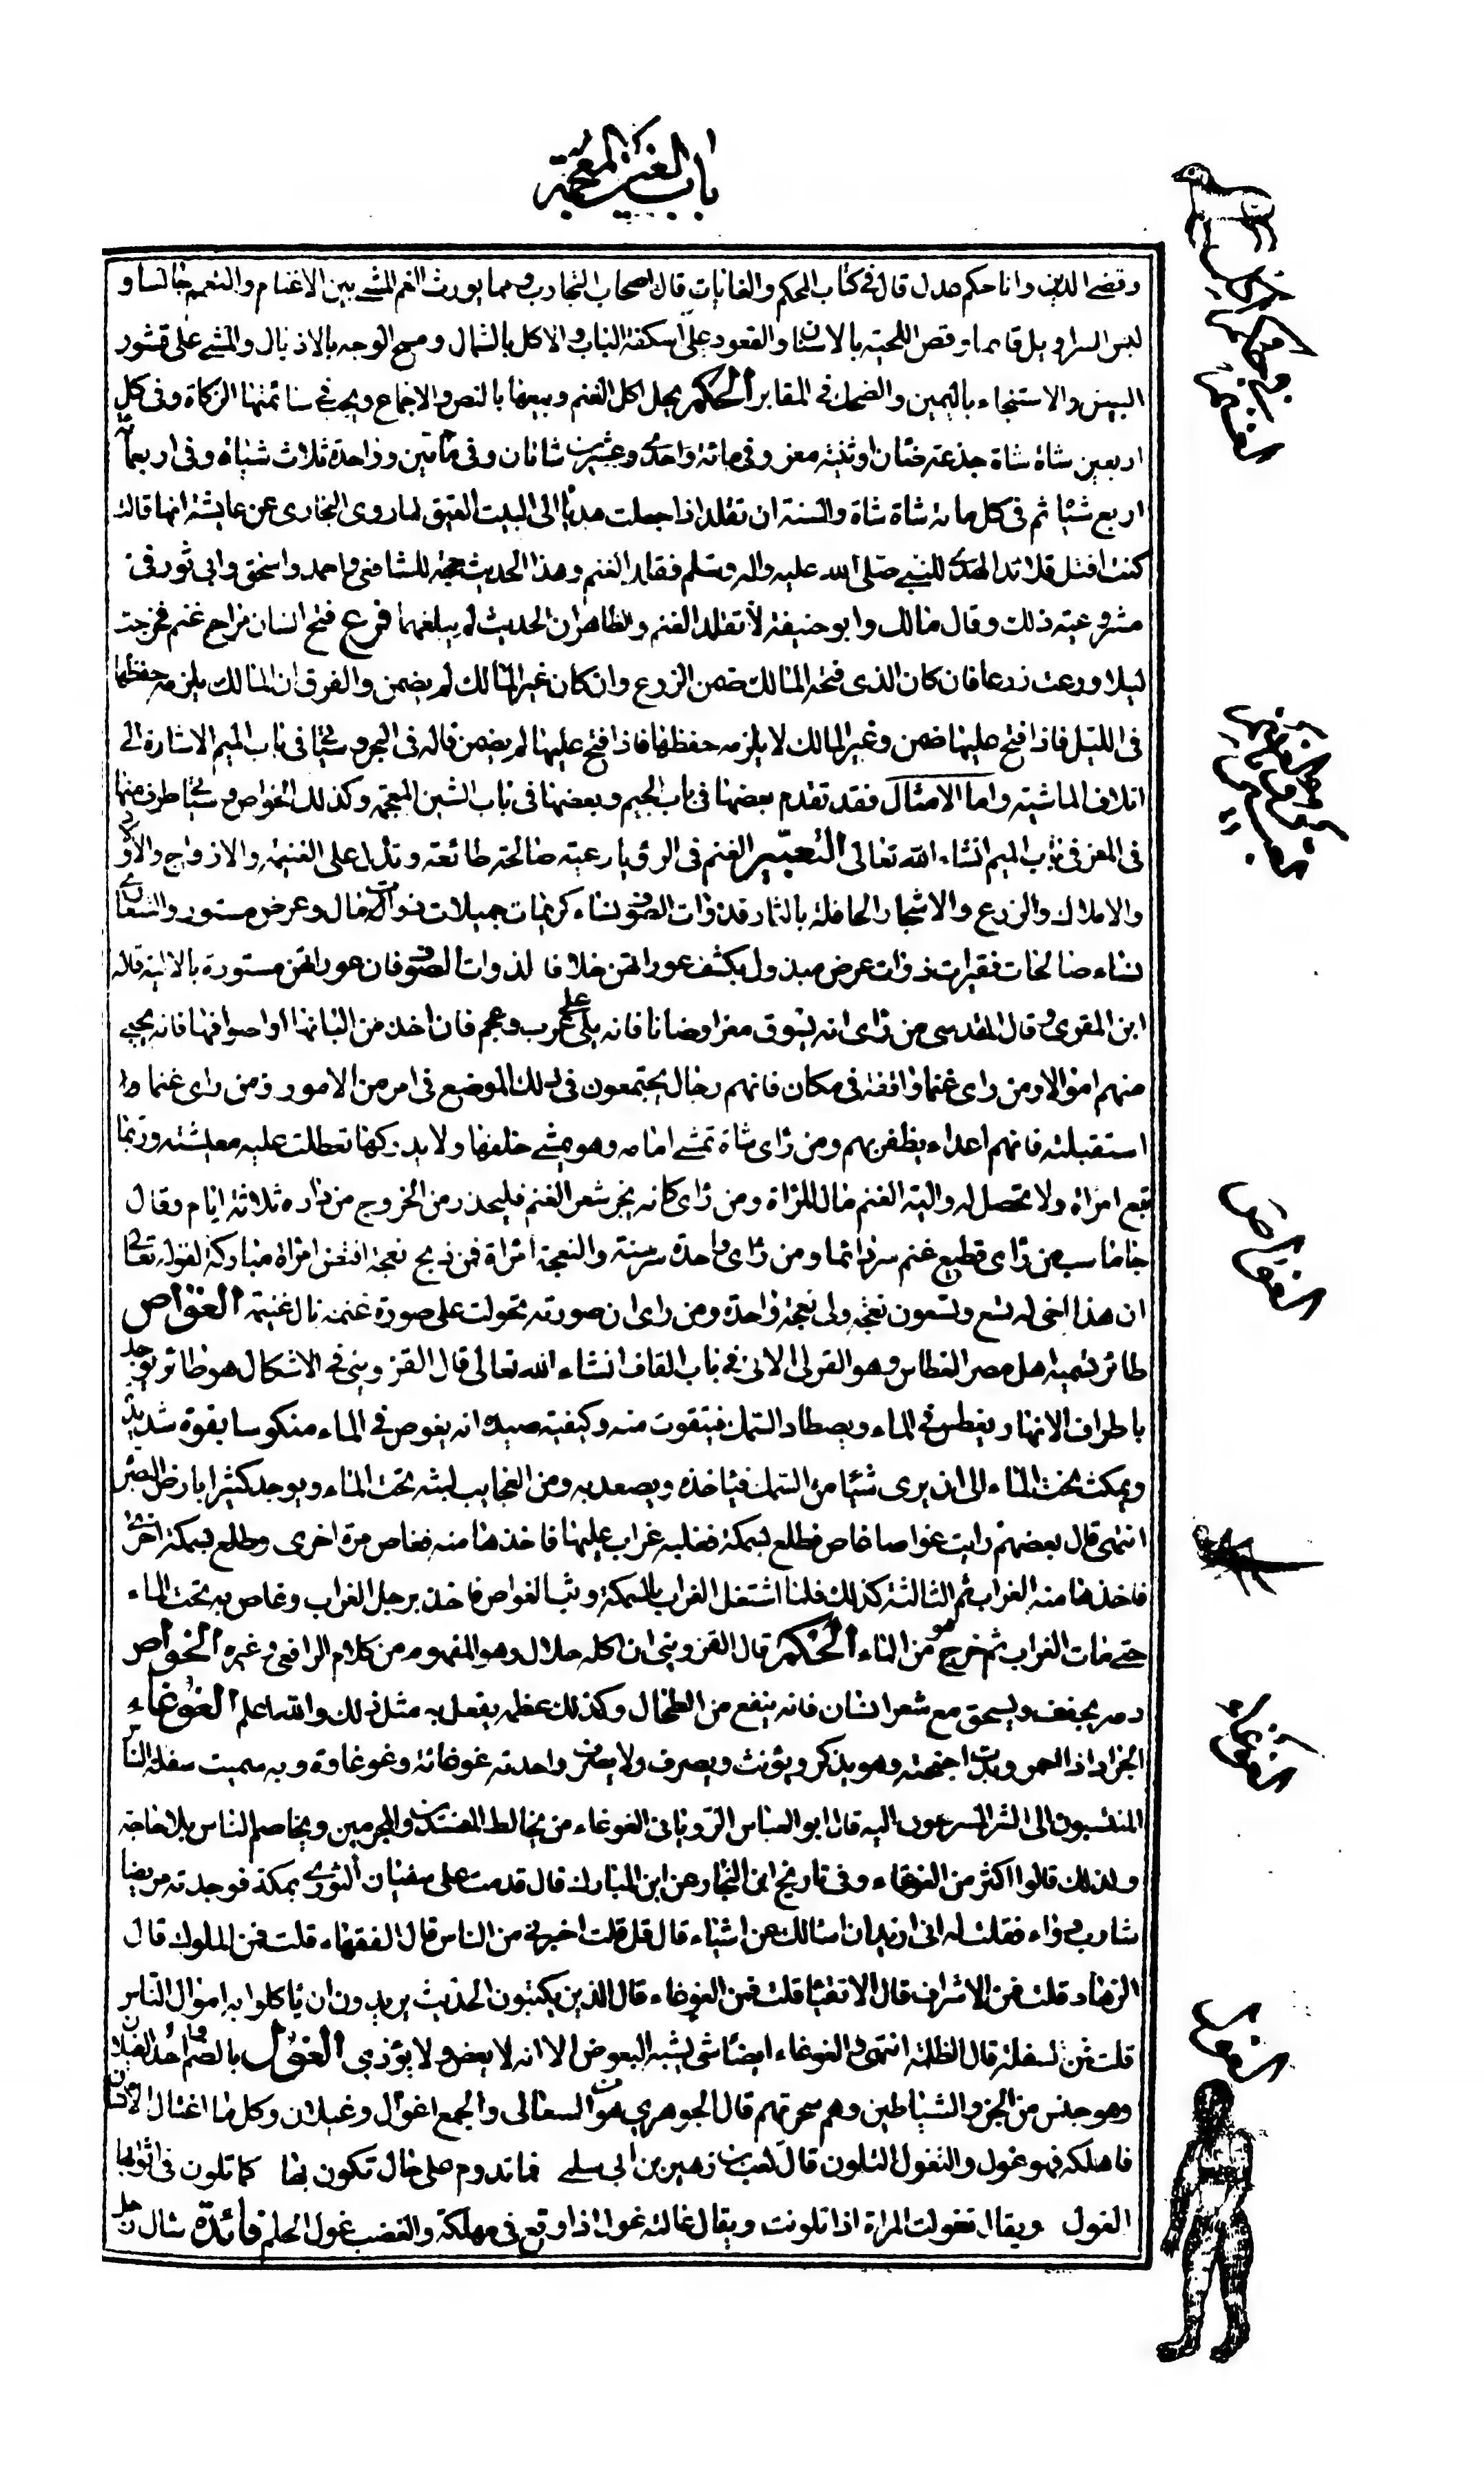 باب الغين المعجمة
وقضى الدين وانا حكم عدل قال فى كتاب الحكم والغايات قال اصحاب التجارب ومما يورث الغم المشى بين الاغنام والتعمم جالسا و
لبس السراويل قائما وقص اللحية بالاسنان والقعود على اسكفة الباب والاكل بالشمال ومسح الوجه بالاذيال والمشى على قشور
البيض والاستنجاء باليمين والضحك فى المقابر الحكم يحل اكل الغنم وبيعها بالنص والاجماع ويجب فى سائمتها الزكاة وفى كل
اربعين شاة شاة جذعة ضئان او ثنية معز وفى مائة واحدى وعشرين شاتان وفى مأتين وواحدة ثلاث شياة وفى اربعمائة
اربع شياة ثم فى كل مائة شاة شاة والسنة ان تقلد اذا جعلت هديا الى البيت العتيق لما روى البخارى عن عايشة انها قالت
كنت افتل قلائد الهدى للنبى صلى الله عليه واله وسلم فقلد الغنم وهذا الحديث حجة للشافعى واحمد واسحق وابى ثور فى
مشروعية ذلك وقال مالك وابو حنيفة لا تقلد الغنم والظاهر ان الحديث لم يبلغهما فرع فتح انسان مراح غنم فخرجت
ليلا ورعت زرعا فان كان الذى فتحه المالك ضمن الزرع وان كان غير المالك لم يضمن والفرق ان المالك يلزمه حفظها
فى الليل فاذا فتح عليها ضمن وغير المالك لا يلزمه حفظها فاذا فتح عليها لم يضمن قاله فى البحر وسياتى فى باب الميم الاشارة الى
اتلاف الماشية واما الامثال فقد تقدم بعضها فى باب الجيم وبعضها فى باب الشين المعجمة وكذلك الخواص وسياتى طرف منها
فى المعز فى باب الميم انشاء الله تعالى التعبير الغنم فى الرؤيا رعية صالحة طائعة وتدل على الغنيمة والازواج والاولاد
والاملاك والزرع والاشجار الحافلة بالثمار فذوات الصوف نساء كريمات جميلات ذوات مال وعرض مستور والشعارى
نساء صالحات فقيرات ذوات عرض مبذول بكشف عوراتهن خلافا لذوات الصوف فان عوراتهن مستورة بالالية قاله
ابن المقرى وقال المقدسى من راى انه يسوق معزا وضانا فانه يلى على عرب وعجم فان اخذ من البانها او اصوافها فانه يجبى
منهم اموالا ومن راى غنما واقفة فى مكان فانهم رجال يجتمعون فى ذلك الموضع فى امر من الامور ومن راى غنما وا
استقبلته فانهم اعداء يظفر بهم ومن راى شاة تمشى امامه وهو يمشى خلفها ولا يدركها تعطلت عليه معيشته وربما
تبع امراة ولا تحصل له والية الغنم مال المراة ومن راى كانه يجز شعر الغنم فليحذر من الخروج من داره ثلاثة ايام وقال
جاماسب من راى قطيع غنم سر دائما ومن راى واحدة سر سنة والنعجة امراة فمن ذبح نعجة افتض امراة مباركة لقوله تعالى
ان هذا اخى له تسع وتسعون نعجة ولى نعجة واحدة ومن راى ان صورته تحولت على صورة غنمه نال غنيمة الغواص
طائر تسميه اهل مصر الغطاس وهو القرلى الاتى فى باب القاف انشاء الله تعالى قال القزوينى فى الاشكال هو طائر يوجد
باطراف الانهار يغطس فى الماء ويصطاد السمك فيتقوت منه وكيفية صيده انه يغوص فى الماء منكوسا بقوة شديدة
ويمكث تحت الماء الى ان يرى شيئا من السمك فياخذه ويصعد به ومن العجايب لبثه تحت الماء ويوجد كثيرا بارض البصرة
انتهى قال بعضهم رايت غواصا غاص فطلع بسمكة فغلبه غراب عليها فاخذها منه فغاص مرة اخرى وطلع بسمكة اخرى
فاخذها منه الغراب ثم الثالثة كذلك فلما اشتغل الغراب بالسمكة وثب الغواص فاخذ برجل الغراب وغاص به تحت الماء
حتى مات الغراب ثم خرج هو من الماء الحكم قال القزوينى ان اكله حلال وهو المفهوم من كلام الرافعى وغيره الخواص
دمه يجفف ويسحق مع شعر انسان فانه ينفع من الطحال وكذلك عظمه يفعل به مثل ذلك والله اعلم الغوغاء
الجراد اذا احمر وبدت اجنحته وهو يذكر ويؤنث ويصرف ولا يصرف واحدته غوغائة وغوغاوة وبه سميت سفلة الناس
المنتسبون الى الشر المسرعون اليه قال ابو العباس الرويانى الغوغاء من يخالط المفسدين والمجرمين ويخاصم الناس بلا حاجة
ولذلك قالوا اكثر من الغوغاء وفى تاريخ ابن النجار عن ابن المبارك قال قدمت على سفيان الثورى بمكة فوجدته مريضا
شارب دواء فقلت له انى اريد ان اسالك عن اشياء قال قل قلت اخبرنى من الناس قال الفقهاء قلت فمن الملوك قال
الزهاد قلت فمن الاشراف قال الاتقياء قلت فمن الغوغاء قال الذين يكتبون الحديث يريدون ان ياكلوا به اموال الناس
قلت فمن السفلة قال الظلمة انتهى والغوغاء ايضا شى يشبه البعوض الا انه لا يعض ولا يؤذى الغول بالضم احد الغيلان
وهو جنس من الجن والشياطين وهم سحرتهم قال الجوهرى هو من السعالى والجمع اغوال وغيلان وكل ما اغتال الانسان
فاهلكه فهو غول والتغول التلون قال كعب بن زهير بن ابى سلمى فما تدوم على حال تكون بها كما تلون فى اثوابها
الغول ويقال تغولت المراة اذا تلونت ويقال غالته غول اذا وقع فى مهلكة والغضب غول الحلم فائدة سال رجل
الغواص
الغوغاء
الغول